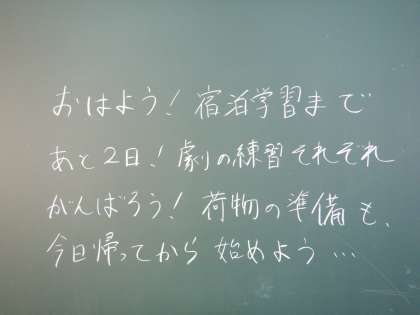 おはよう！宿泊学習まで
あと2日！劇の練習それぞれ
がんばろう！荷物の準備も、
今日帰ってから始めよう…